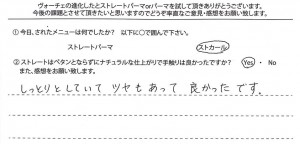 ヴォーチェの進化したストレートパーマorパーマを試して頂きありがとうございます。
今後の課題とさせて頂きたいと思いますのでどうぞ率直なご意見・感想をお願い致します。
①今日、されたメニューは何でしたか? 以下に○で囲んで下さい。
ストレートパーマ ストカール
②ストレートはペタンとならずにナチュラルな仕上がりで手触りは良かったですか? Yes・No
また、感想をお願い致します。
しっとりとしていて ツヤもあって 良かったです。